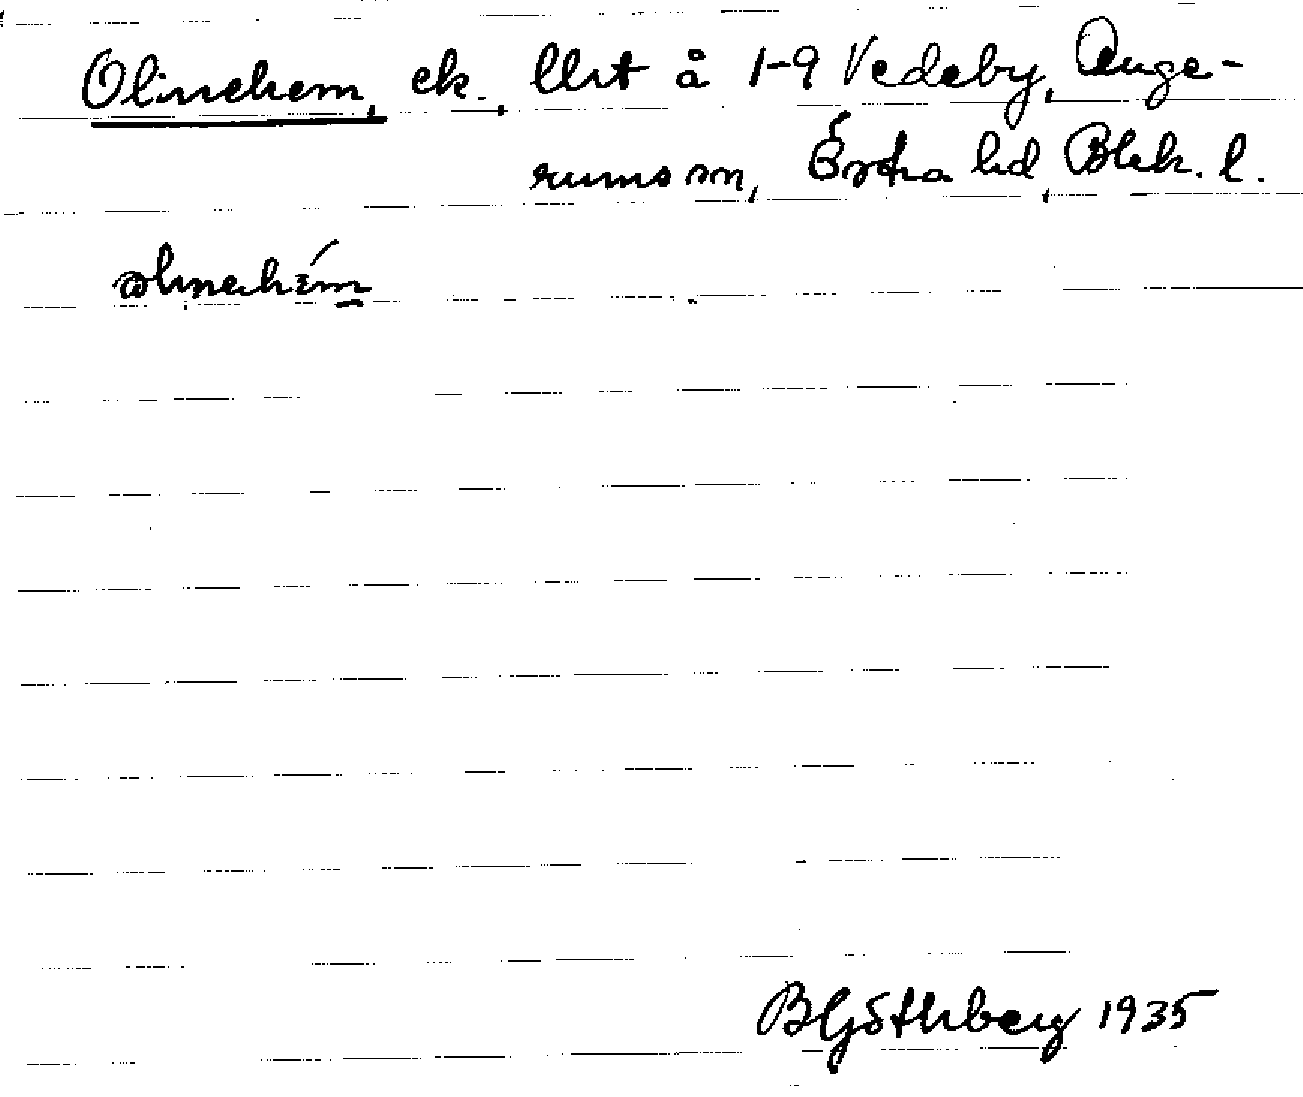 Olinehem, ek., llrt å 1-9 Vedeby, Auge-
rums sn, Östra hd, Blek. l.
BGöthberg 1935